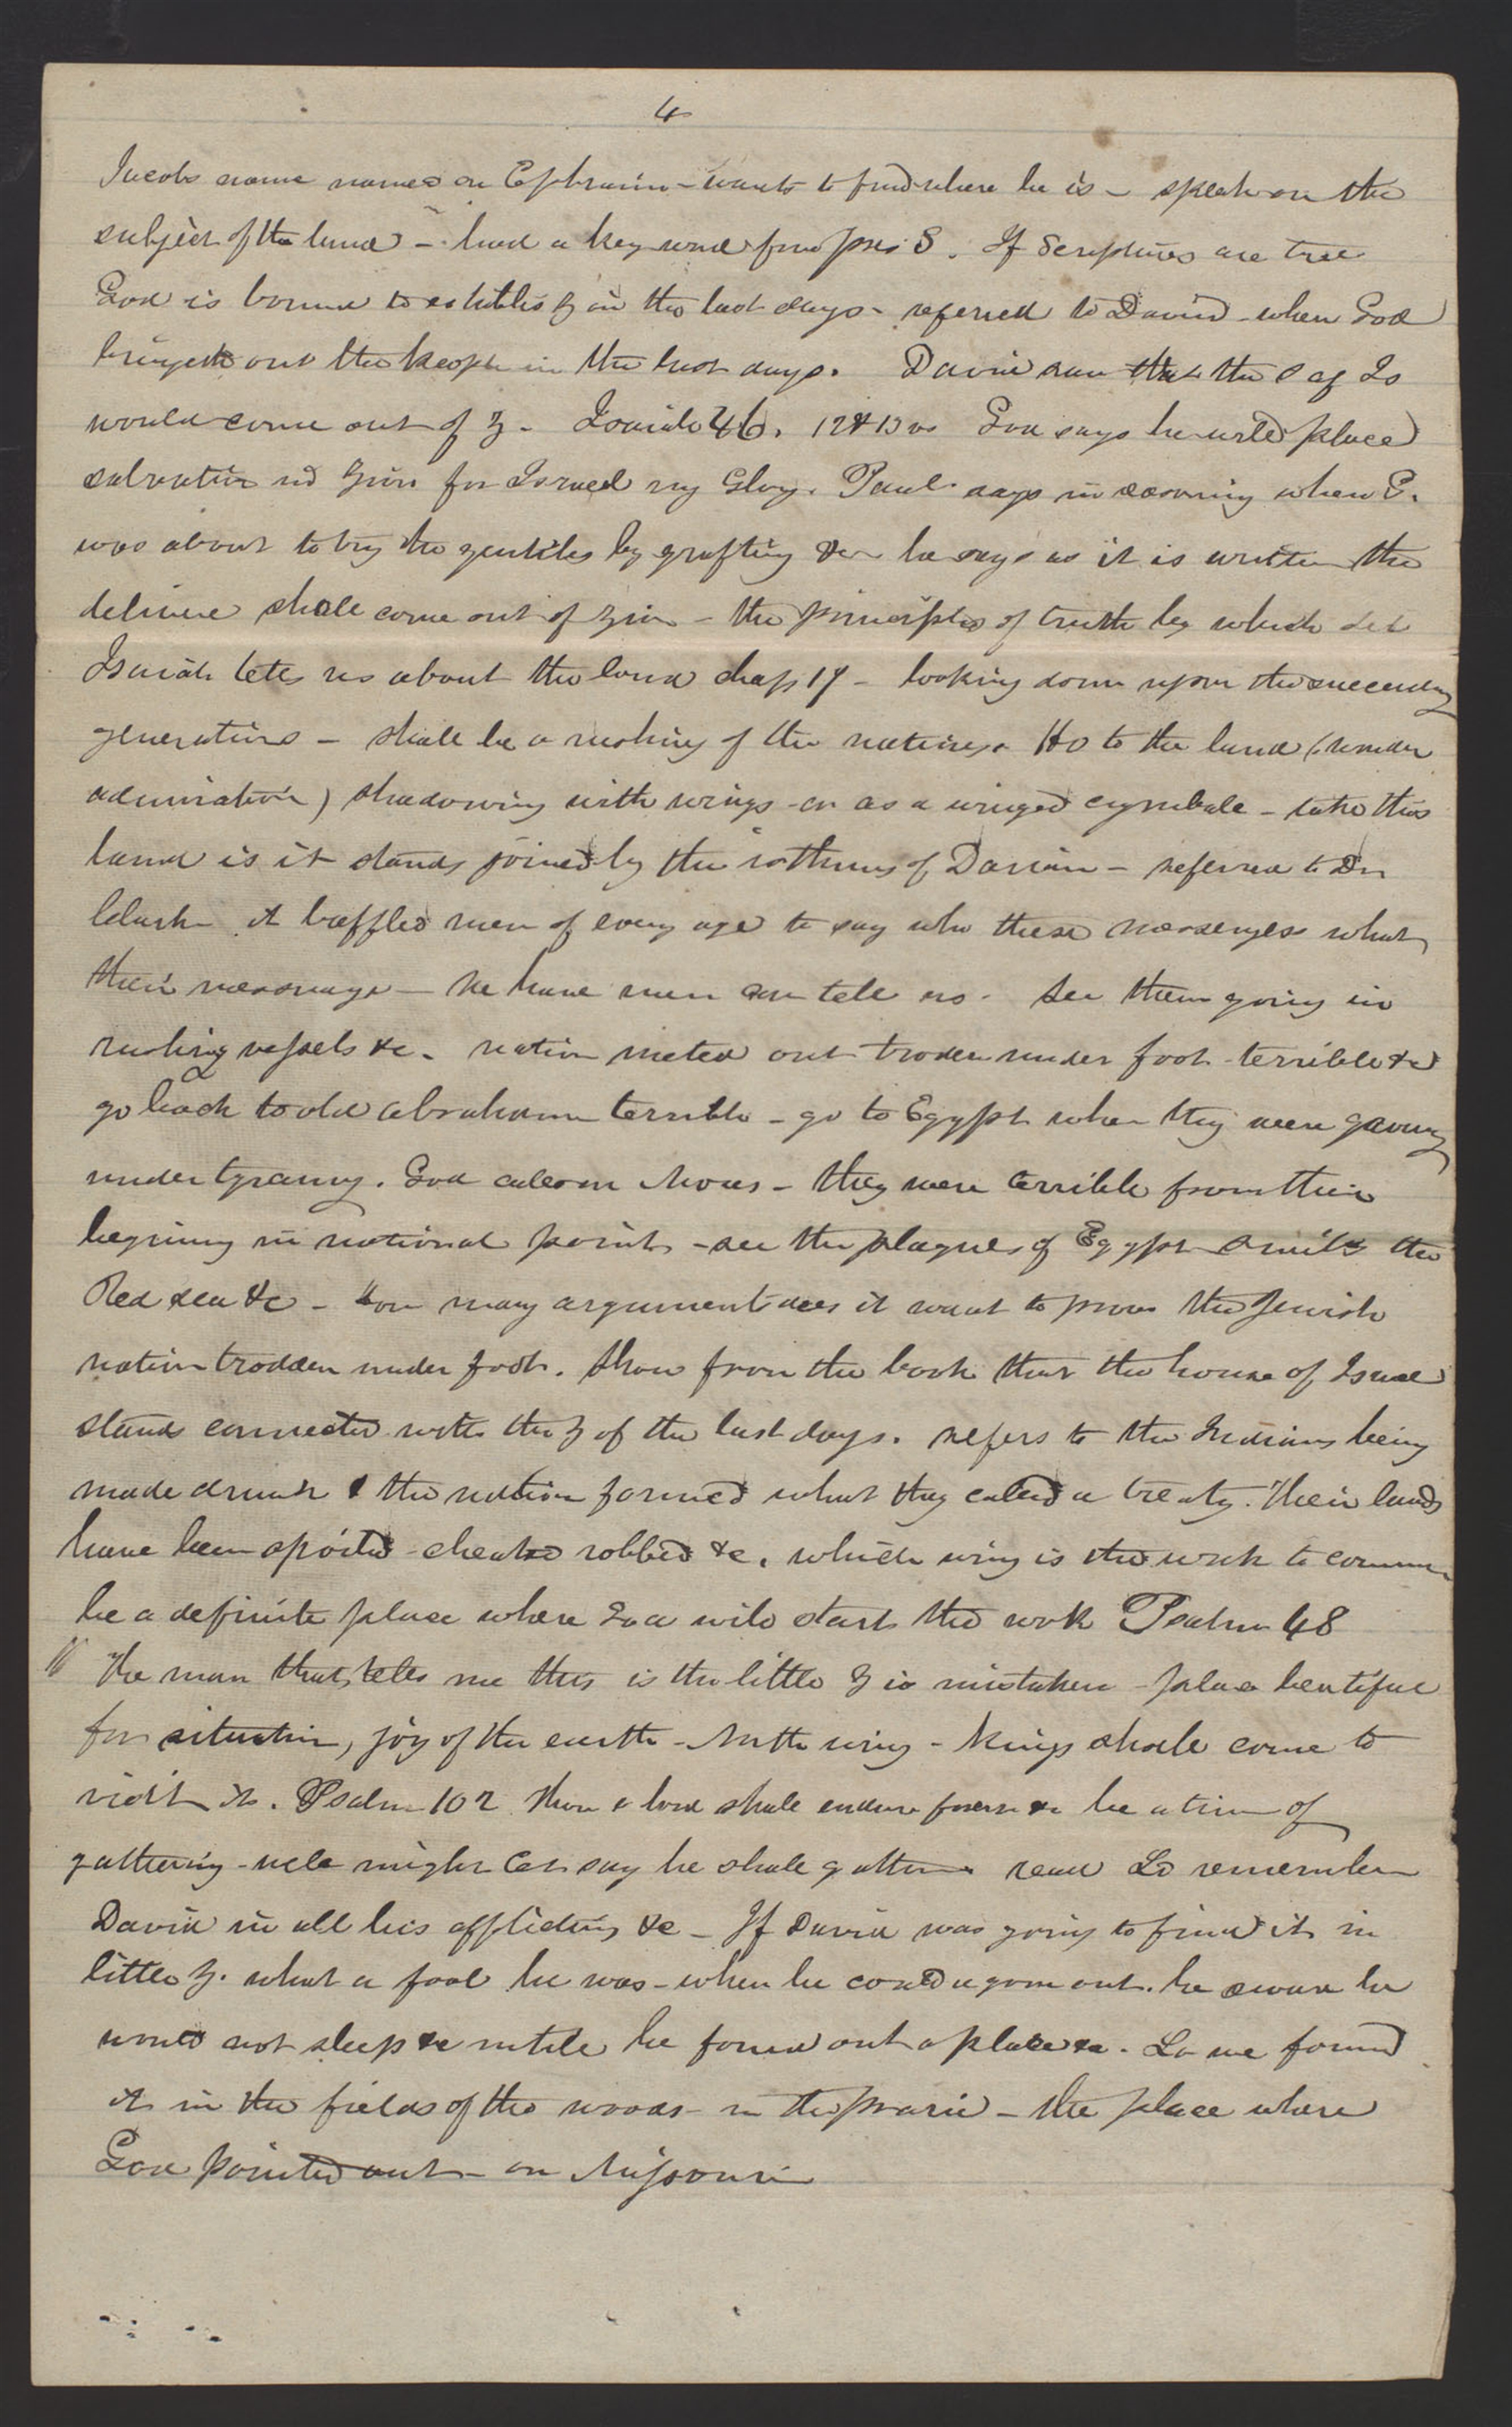 4
Jacobs name named on Ephraim - wants to find where he is - speak on the
subject of the land - had a key word from pres S. If Scriptures are true
God is bound to establis Z in the last days - referred to David - when God
bringeth out the people in the last days. David saw that the S of Is
would come out of Z - Isaiah 46. 12 & 13 vs God says he will place
salvation in Zion for Israel my Glory. Paul says in when G.
was about to try the gentiles by grafting &c he says as it is written the
deliverer shall come out of Zion - the principles of truth by which del
Isaiah tells us about the land chap 17 - looking down upon the succeeding
generations - shall be a rushing of the nations. Ho to the land (under
admiration) shadowing with wings - or as a winged cymbale - take this
land is it stands joined by the isthmus of Darian - referred to Dr
Clark it baffled men of every age to say who these messengers what
their message - we have men can tell us - see them going in
rushing vessels &c - nation meted out troden under foot - terrible &c
go back to old Abraham terrible - go to Egypt when they were
under tyranny. God calls on Moses - they were terrible from their
begining in national point - see the plagues of Egypt smits the
Red sea &c - How many argument does it want to prove the Jewish
nation trodden under foot. Show from the book that the house of Israel
stands connected with the Z of the last days. refers to the Indians being
made drunk & the nation formed what they called a treaty. Their lands
have been spoiled - cheated robbed &c. which wing is the work to comm
be a definite place where God will start the work Psalm 48
" The man that tells me this is the little Z is mistaken - place beutiful
for situation, joy of the earth - North wing - kings shall come to
visit it. Psalm 102 thou o lord shall endure forever &c be a time of
gathering - well might say he shall gather read Ld remember
David in all his afflictions &c - If David was going to find it in
little Z. what a fool he was - when he could a gone out. he swore he
would not sleep &c untill he found out a place &c. Lo we found
it in the fields of the woods - in the prarie - the place where
God pointed out - on Missouri